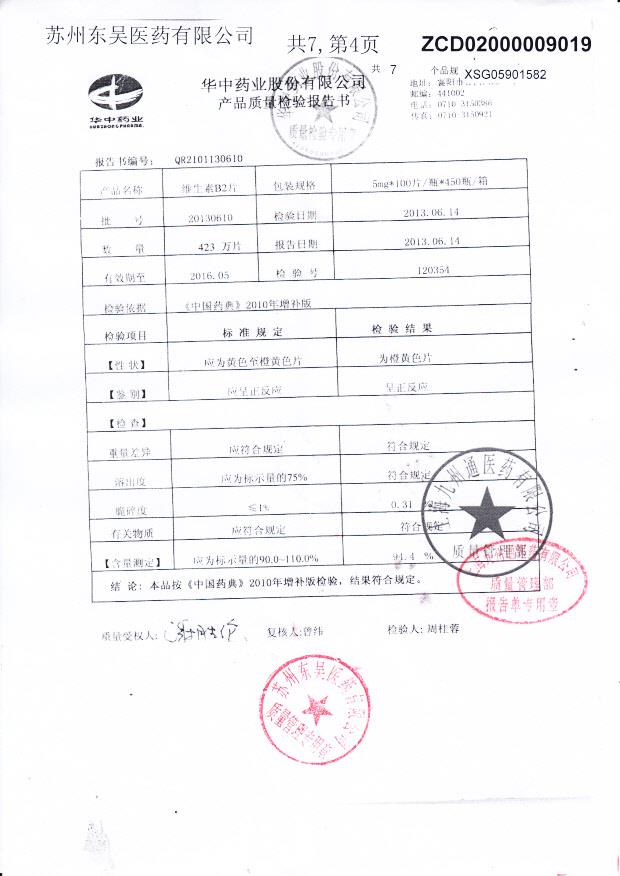 苏州东吴医药有限公司 共7,第4页 ZCD02000009019
共 7 个品规 XSG05901582
华中药业股份有限公司
产品质量检验报告书
华中药业
HUAZHONG PHARMA.
邮编: 441002
电话: 0710 3150386
传真: 0710 3150921
质量检验专用章
报告书编号: QR2101130610
产品名称 维生素B2片 包装规格 5mg*100片/瓶*450瓶/箱
批 号 20130610 检验日期 2013.06.14
数 量 423 万片 报告日期 2013.06.14
有效期至 2016.05 检 验 号 120354
检验依据 《中国药典》2010年增补版
检验项目 标 准 规 定 检 验 结 果
【性 状】 应为黄色至橙黄色片 为橙黄色片
【鉴 别】 应呈正反应 呈正反应
【检 查】
重量差异 应符合规定 符合规定
溶出度 应为标示量的75% 符合规定
脆碎度 ≤1% 0.31
有关物质 应符合规定 符合规定
【含量测定】 应为标示量的90.0~110.0% 94.4 %
结 论: 本品按《中国药典》2010年增补版检验, 结果符合规定。
上海九州通医药有限公司
质量管理部
质量管理部
报告单专用章
质量受权人: 复核人:曾纬 检验人: 周桂蓉
苏州东吴医药有限公司
质量管理专用章